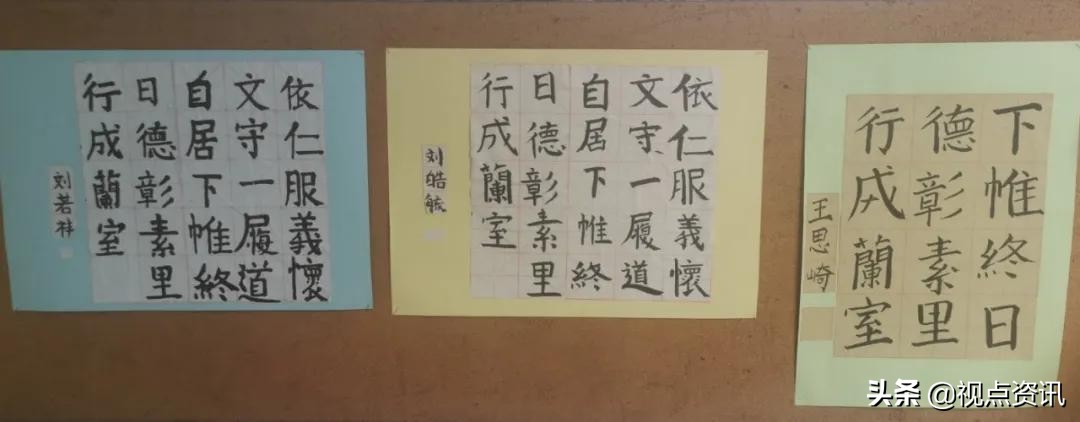 依仁服義懷
文守一履道
自居下帷終
日德彰素里
行成蘭室
刘若祥
依仁服義懷
文守一履道
自居下帷終
日德彰素里
行成蘭室
刘皓毓
下帷終日
德彰素里
行成蘭室
王思崎
头条@视点资讯